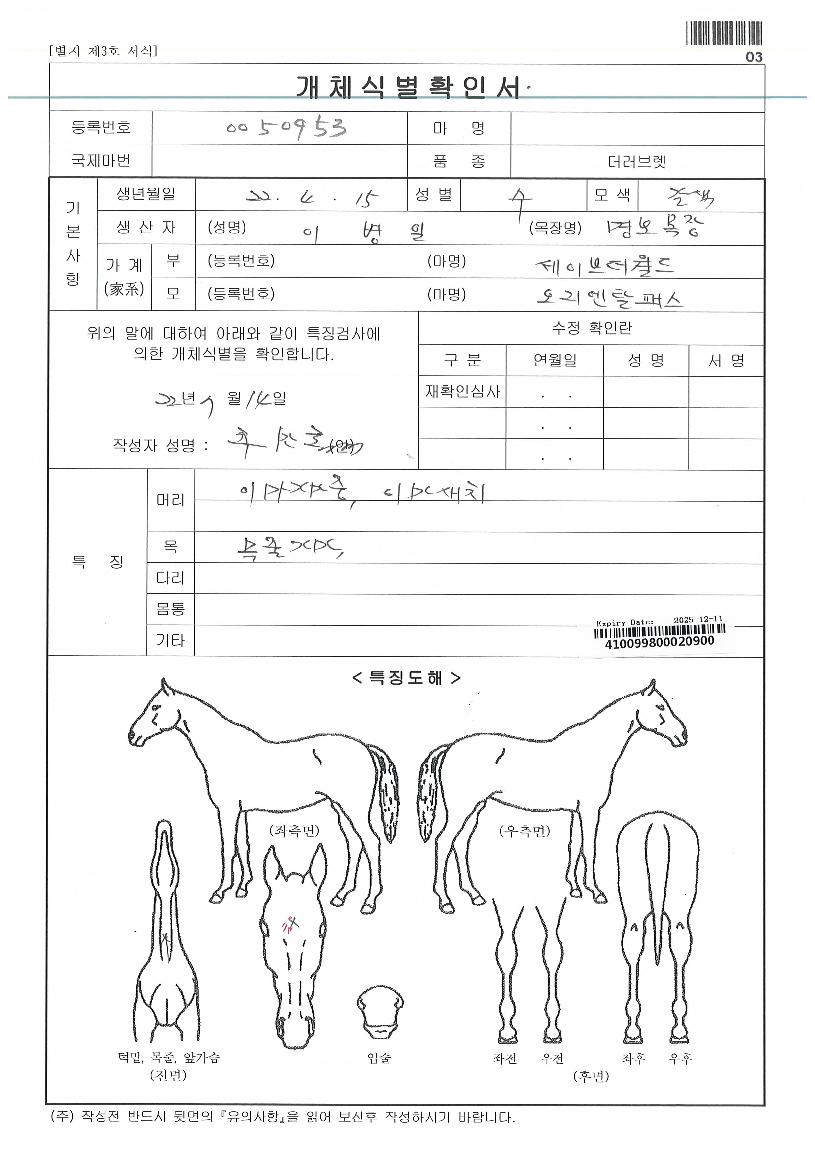 [별지 제3호 서식]
03
개체식별확인서
등록번호 0050953 마 명
국제마번 품 종 더러브렛
기본사항
생년월일 22. 4. 15 성 별 수 모 색
생 산 자 (성명) 이 병 일 (목장명) 명보목장
가 계 (家系) 부 (등록번호) (마명)
모 (등록번호) (마명) 오리엔탈패스
위의 말에 대하여 아래와 같이 특징검사에
의한 개체식별을 확인합니다.
22년 9월 14일
작성자 성명 :
수정 확인란
구 분 연월일 성 명 서 명
재확인심사 . .
. .
. .
특 징
머리 이마자중,
목
다리
몸통
기타
Expiry Date: 2025-12-11
410099800020900
< 특징도해 >
(좌측면) (우측면)
턱밑, 목줄, 앞가슴 입술 좌전 우전 좌후 우후
(전면) (후면)
(주) 작성전 반드시 뒷면의 『유의사항』을 읽어 보신후 작성하시기 바랍니다.